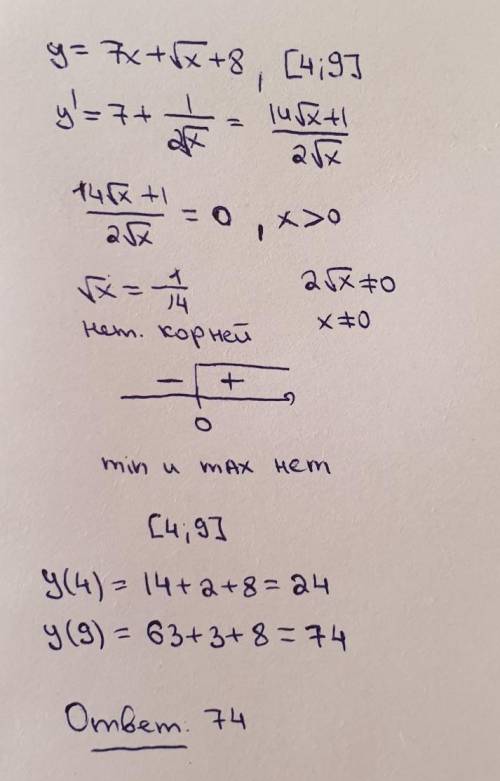 y = 7x + √x + 8, [4; 9]
y' = 7 + 1/(2√x) = (14√x+1)/(2√x)
(14√x + 1)/(2√x) = 0, x > 0
√x = -1/14 2√x ≠ 0
нет. корней x ≠ 0
− +
0
min и max нет
[4; 9]
y(4) = 14 + 2 + 8 = 24
y(9) = 63 + 3 + 8 = 74
Ответ: 74